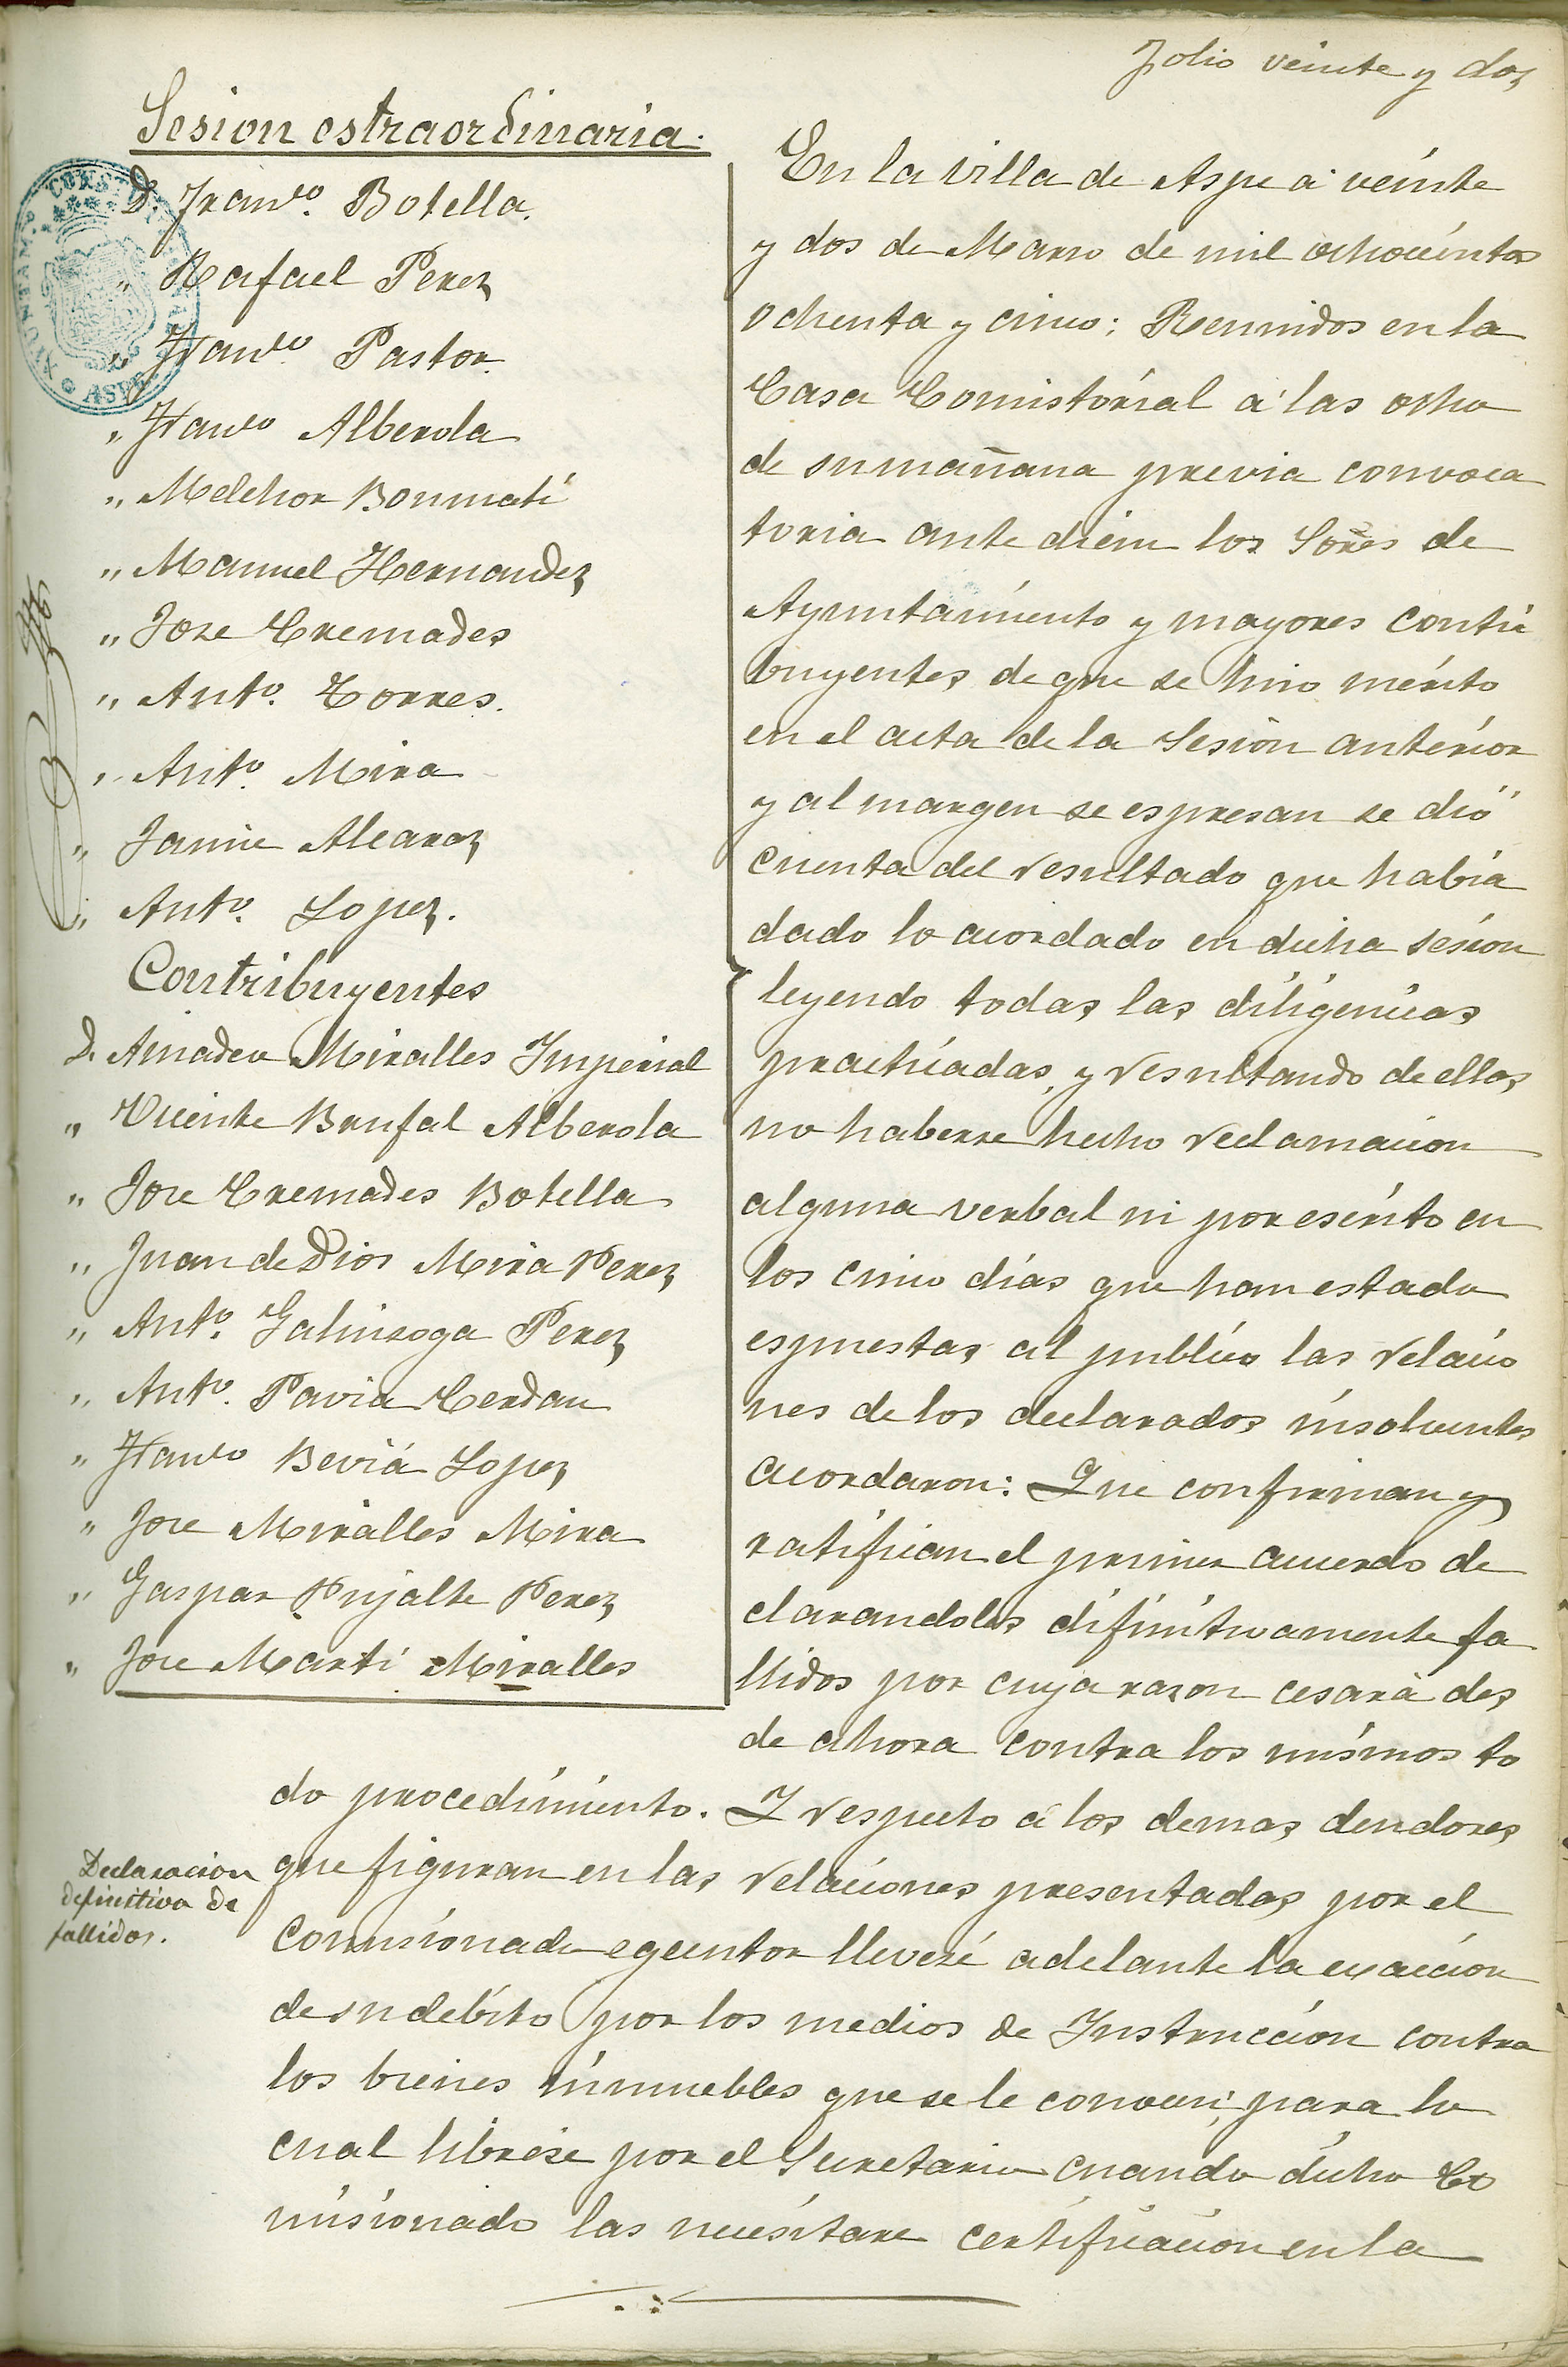 Folio veinte y dos
Sesion estraordinaria.
D. Franco. Botella.
" Rafael Perez
" Franco. Pastor.
" Franco Alberola
" Melchor Bonmatí
" Manuel Hernandez
" Jose Cremades
" Anto. Torres.
" Anto. Mira
" Jaime Alcaraz
" Anto. Lopez.
Contribuyentes
D. Amadeo Miralles Imperial
" Vicente Brufal Alberola
" Jose Cremades Botella
" Juan de Dios Mira Perez
" Anto. Galinsoga Perez
" Anto. Pavia Cerdan
" Franco Beviá Lopez
" Jose Miralles Mira
" Gaspar Pujalte Perez
" Jose Martí Miralles
En la villa de Aspe a veinte
y dos de Marzo de mil ochocientos
ochenta y cinco: Reunidos en la
Casa Comistorial a las ocho
de su mañana previa convoca
toria ante diem los Sores de
Ayuntamiento y mayores contri
buyentes de que se hizo merito
en el acta de la Sesion anterior
y al margen se espresan se dió
cuenta del resultado que habia
dado lo acordado en dicha sesion
leyendo todas las diligencias
practicadas, y resultando de ellas
no haberse hecho reclamacion
alguna verbal ni por escrito en
los cinco dias que han estado
espuestas al publico las relacio
nes de los declarados insolventes
acordaron: Que confirman y
ratifican el primer acuerdo de
clarandoles difinitivamente fa
llidos por cuya razon cesará des
de ahora contra los mismos to
do procedimiento. Y respecto á los demas deudores
que figuran en las relaciones presentadas por el
Comisionado egecutor llevese adelante la exaccion
de su debito por los medios de Instruccion contra
los bienes inmuebles que se le conocen; para lo
cual librese por el Secretario cuando dicho Co
misionado las necesitare certificacion en la
Declaracion
definitiva de
fallidos.
AYUNTAM.
CONST
ASPE